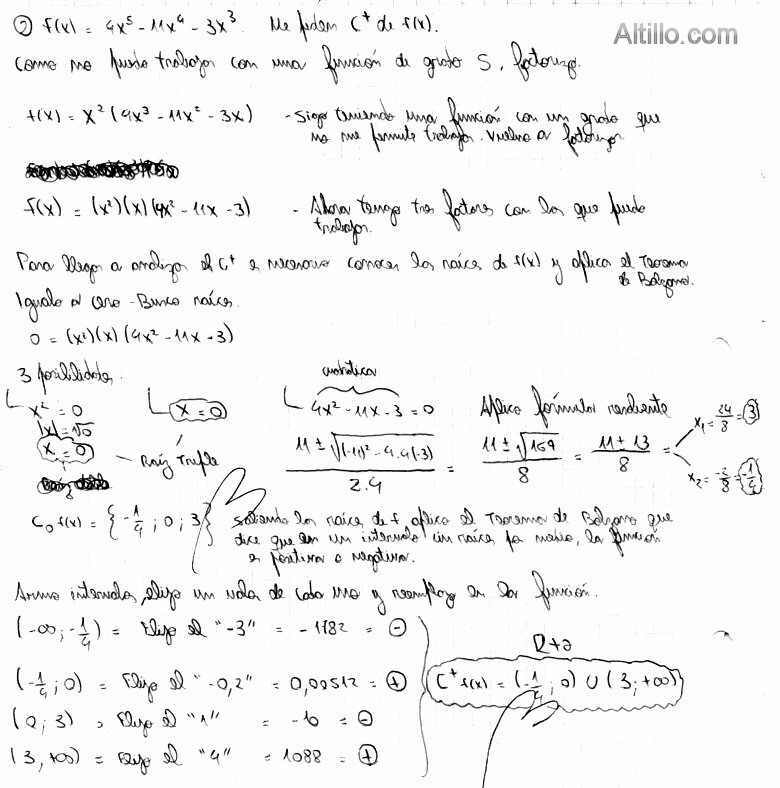 Altillo.com
② f(x) = 4x⁵ - 11x⁴ - 3x³. Me piden C⁺ de f(x).
Como no puedo trabajar con una función de grado 5, factorizo.
f(x) = x² (4x³ - 11x² - 3x) - Sigo teniendo una función con un grado que
no me permite trabajar. Vuelvo a factorizar
f(x) = (x²)(x)(4x² - 11x - 3) - Ahora tengo tres factores con los que puedo
trabajar.
Para llegar a analizar el C⁺ es necesario conocer las raíces de f(x) y aplicar el Teorema
de Bolzano.
Igualo a cero - Busco raíces.
0 = (x²)(x)(4x² - 11x - 3)
3 posibilidades.
cuadrática
x² = 0
|x| = √0
x = 0
x = 0
Raíz Triple
4x² - 11x - 3 = 0
Aplico fórmula resolvente
11 ± √((-11)² - 4.4(-3)) / 2.4 = 11 ± √169 / 8 = 11 ± 13 / 8 =
x₁ = 24/8 = 3
x₂ = -2/8 = -1/4
C₀ f(x) = {-1/4 ; 0 ; 3} Sabiendo las raíces de f, aplico el Teorema de Bolzano que
dice que en un intervalo sin raíces por medio, la función
es positiva o negativa.
Armo intervalos, elijo un valor de cada uno y reemplazo en la función.
(-∞; -1/4) = Elijo el "-3" = -1782 = ⊖
(-1/4; 0) = Elijo el "-0,2" = 0,00512 = ⊕
(0; 3) = Elijo el "1" = -10 = ⊖
(3, +∞) = Elijo el "4" = 1088 = ⊕
C⁺ f(x) = (-1/4; 0) ∪ (3; +∞)